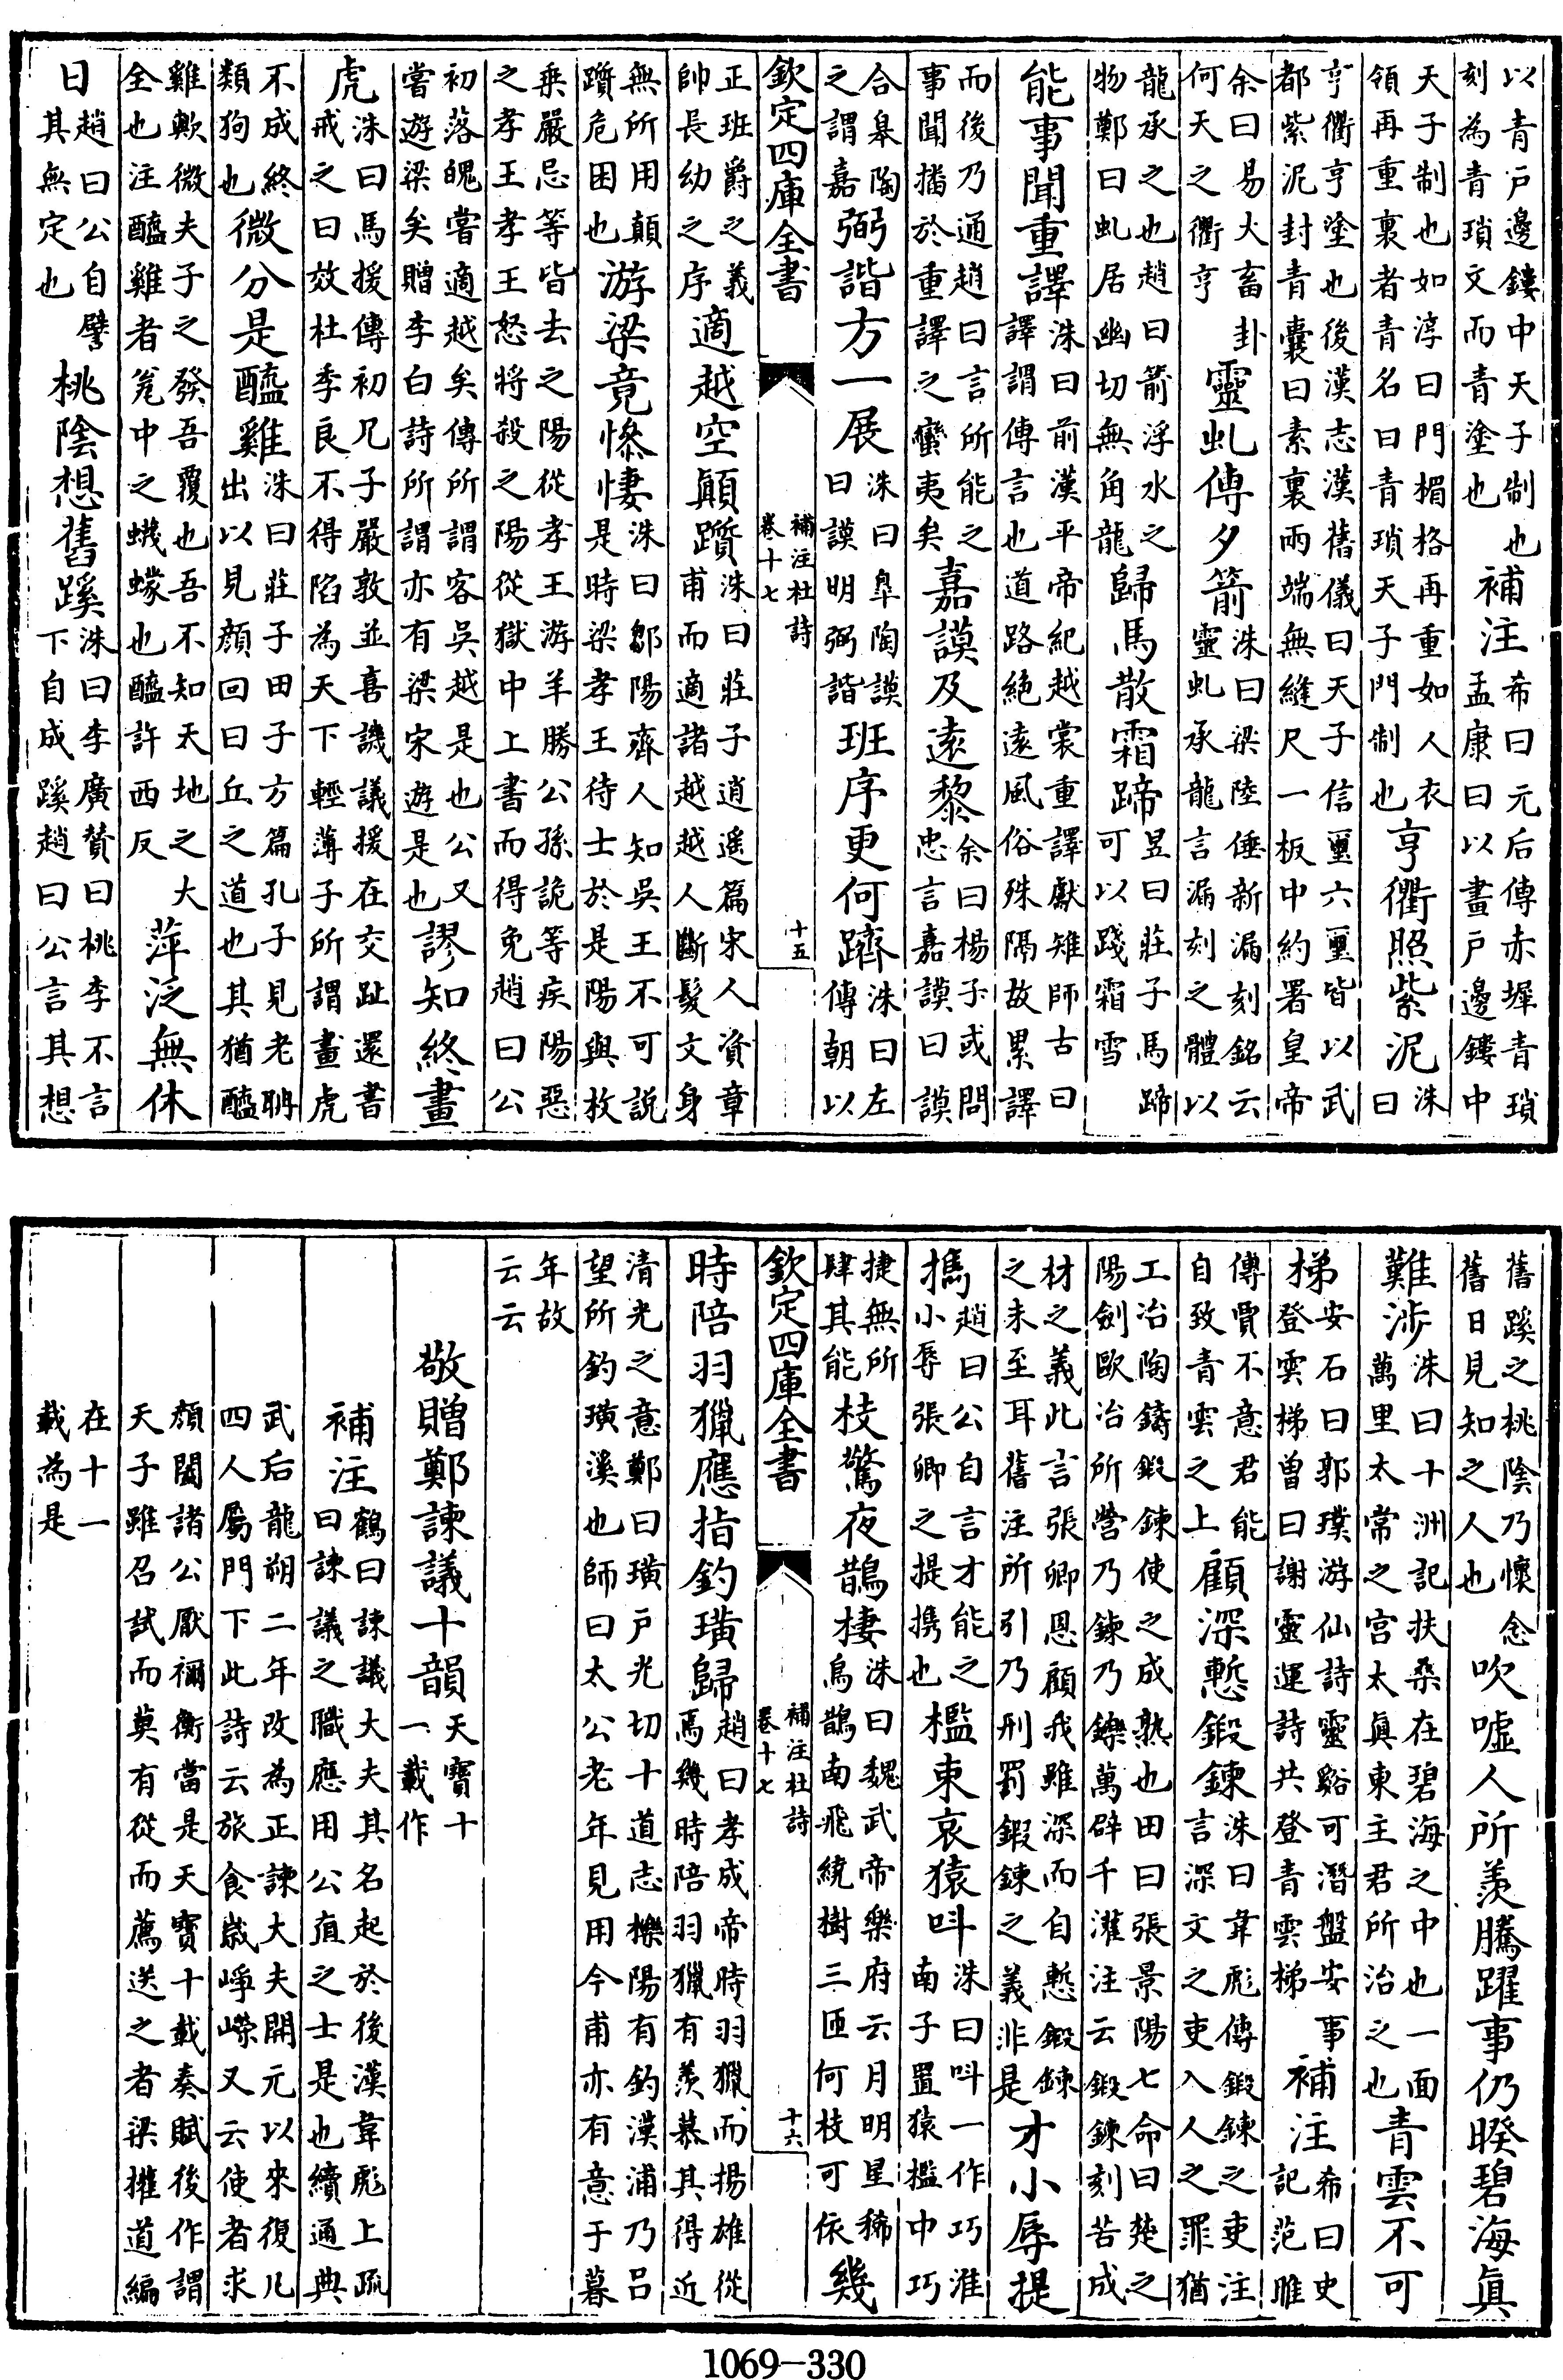 以青戸邊鏤中天子制也
刻為青瑣文而青塗也
補注
希曰元后傳赤墀青瑣
孟康曰以畫戸邊鏤中
天子制也如淳曰門楣格再重如人衣
領再重裏者青名曰青瑣天子門制也
亨衢照紫泥
洙
曰
亨衢亨塗也後漢志漢舊儀曰天子信璽六璽皆以武
都紫泥封青囊曰素裏兩端無縫尺一板中約署皇帝
余曰易大畜卦
何天之衢亨
靈虬傳夕箭
洙曰梁陸倕新漏刻銘云
靈虬承龍言漏刻之體以
龍承之也趙曰箭浮水之
物鄭曰虬居幽切無角龍
歸馬散霜蹄
昱曰莊子馬蹄
可以踐霜雪
能事聞重譯
洙曰前漢平帝紀越裳重譯獻雉師古曰
譯謂傳言也道路絶逺風俗殊隔故累譯
而後乃通趙曰言所能之
事聞播於重譯之蠻夷矣
嘉謨及逺黎
余曰楊子或問
忠言嘉謨曰謨
合皋陶
之謂嘉
弼諧方一展
洙曰臯陶謨
曰謨明弼諧
班序更何躋
洙曰左
傳朝以
欽定四庫全書
補注杜詩
卷十七
十五
正班爵之義
帥長幼之序
適越空顛躓
洙曰莊子逍遥篇宋人資章
甫而適諸越越人斷髮文身
無所用顛
躓危困也
游梁竟慘悽
洙曰鄒陽齊人知吳王不可說
是時梁孝王待士於是陽與枚
乗嚴忌等皆去之陽從孝王游羊勝公孫詭等疾陽惡
之孝王孝王怒將殺之陽從獄中上書而得免趙曰公
初落魄嘗適越矣傳所謂客吳越是也公又
嘗遊梁矣贈李白詩所謂亦有梁宋遊是也
謬知終畫
虎
洙曰馬援傳初兄子嚴敦並喜譏議援在交趾還書
戒之曰效杜季良不得陷為天下輕薄子所謂畫虎
不成終
類狗也
微分是醯雞
洙曰莊子田子方篇孔子見老聃
出以見顔回曰丘之道也其猶醯
雞歟微夫子之發吾覆也吾不知天地之大
全也注醯雞者瓮中之蠛蠓也醯許西反
萍泛無休
日
趙曰公自譬
其無定也
桃隂想舊蹊
洙曰李廣賛曰桃李不言
下自成蹊趙曰公言其想
舊蹊之桃隂乃懷念
舊日見知之人也
吹噓人所羨騰躍事仍暌碧海真
難涉
洙曰十洲記扶桑在碧海之中也一面
萬里太常之宫太真東主君所治之也
青雲不可
梯
安石曰郭璞游仙詩靈谿可潛盤安事
登雲梯曽曰謝靈運詩共登青雲梯
補注
希曰史
記范雎
傳賈不意君能
自致青雲之上
顧深慙鍛鍊
洙曰韋彪傳鍛鍊之吏注
言深文之吏入人之罪猶
工冶陶鑄鍛鍊使之成熟也田曰張景陽七命曰楚之
陽劍歐冶所營乃鍊乃鑠萬辟千灌注云鍛鍊刻苦成
材之義此言張卿恩顧我雖深而自慙鍛鍊
之未至耳舊注所引乃刑罰鍜鍊之義非是
才小辱提
擕
趙曰公自言才能之
小辱張卿之提携也
檻束哀猿叫
洙曰呌一作巧淮
南子置猿檻中巧
捷無所
肆其能
枝驚夜鵲棲
洙曰魏武帝樂府云月明星稀
烏鵲南飛繞樹三匝何枝可依
幾
欽定四庫全書
補注杜詩
卷十七
十六
時陪羽獵應指釣璜歸
趙曰孝成帝時羽獵而揚雄從
焉幾時陪羽獵有羨慕其得近
清光之意鄭曰璜戸光切十道志櫟陽有釣漢浦乃吕
望所釣璜溪也師曰太公老年見用今甫亦有意于暮
年故
云云
敬贈鄭諫議十韻
天寳十
一載作
補注
鶴曰諫議大夫其名起於後漢韋彪上疏
曰諫議之職應用公直之士是也續通典
武后龍朔二年改為正諫大夫開元以來復凡
四人屬門下此詩云旅食嵗崢嶸又云使者求
顔闔諸公厭禰衡當是天寳十載奏賦後作謂
天子雖召試而莫有從而薦送之者梁摧道編
在十一
載為是
1069-330